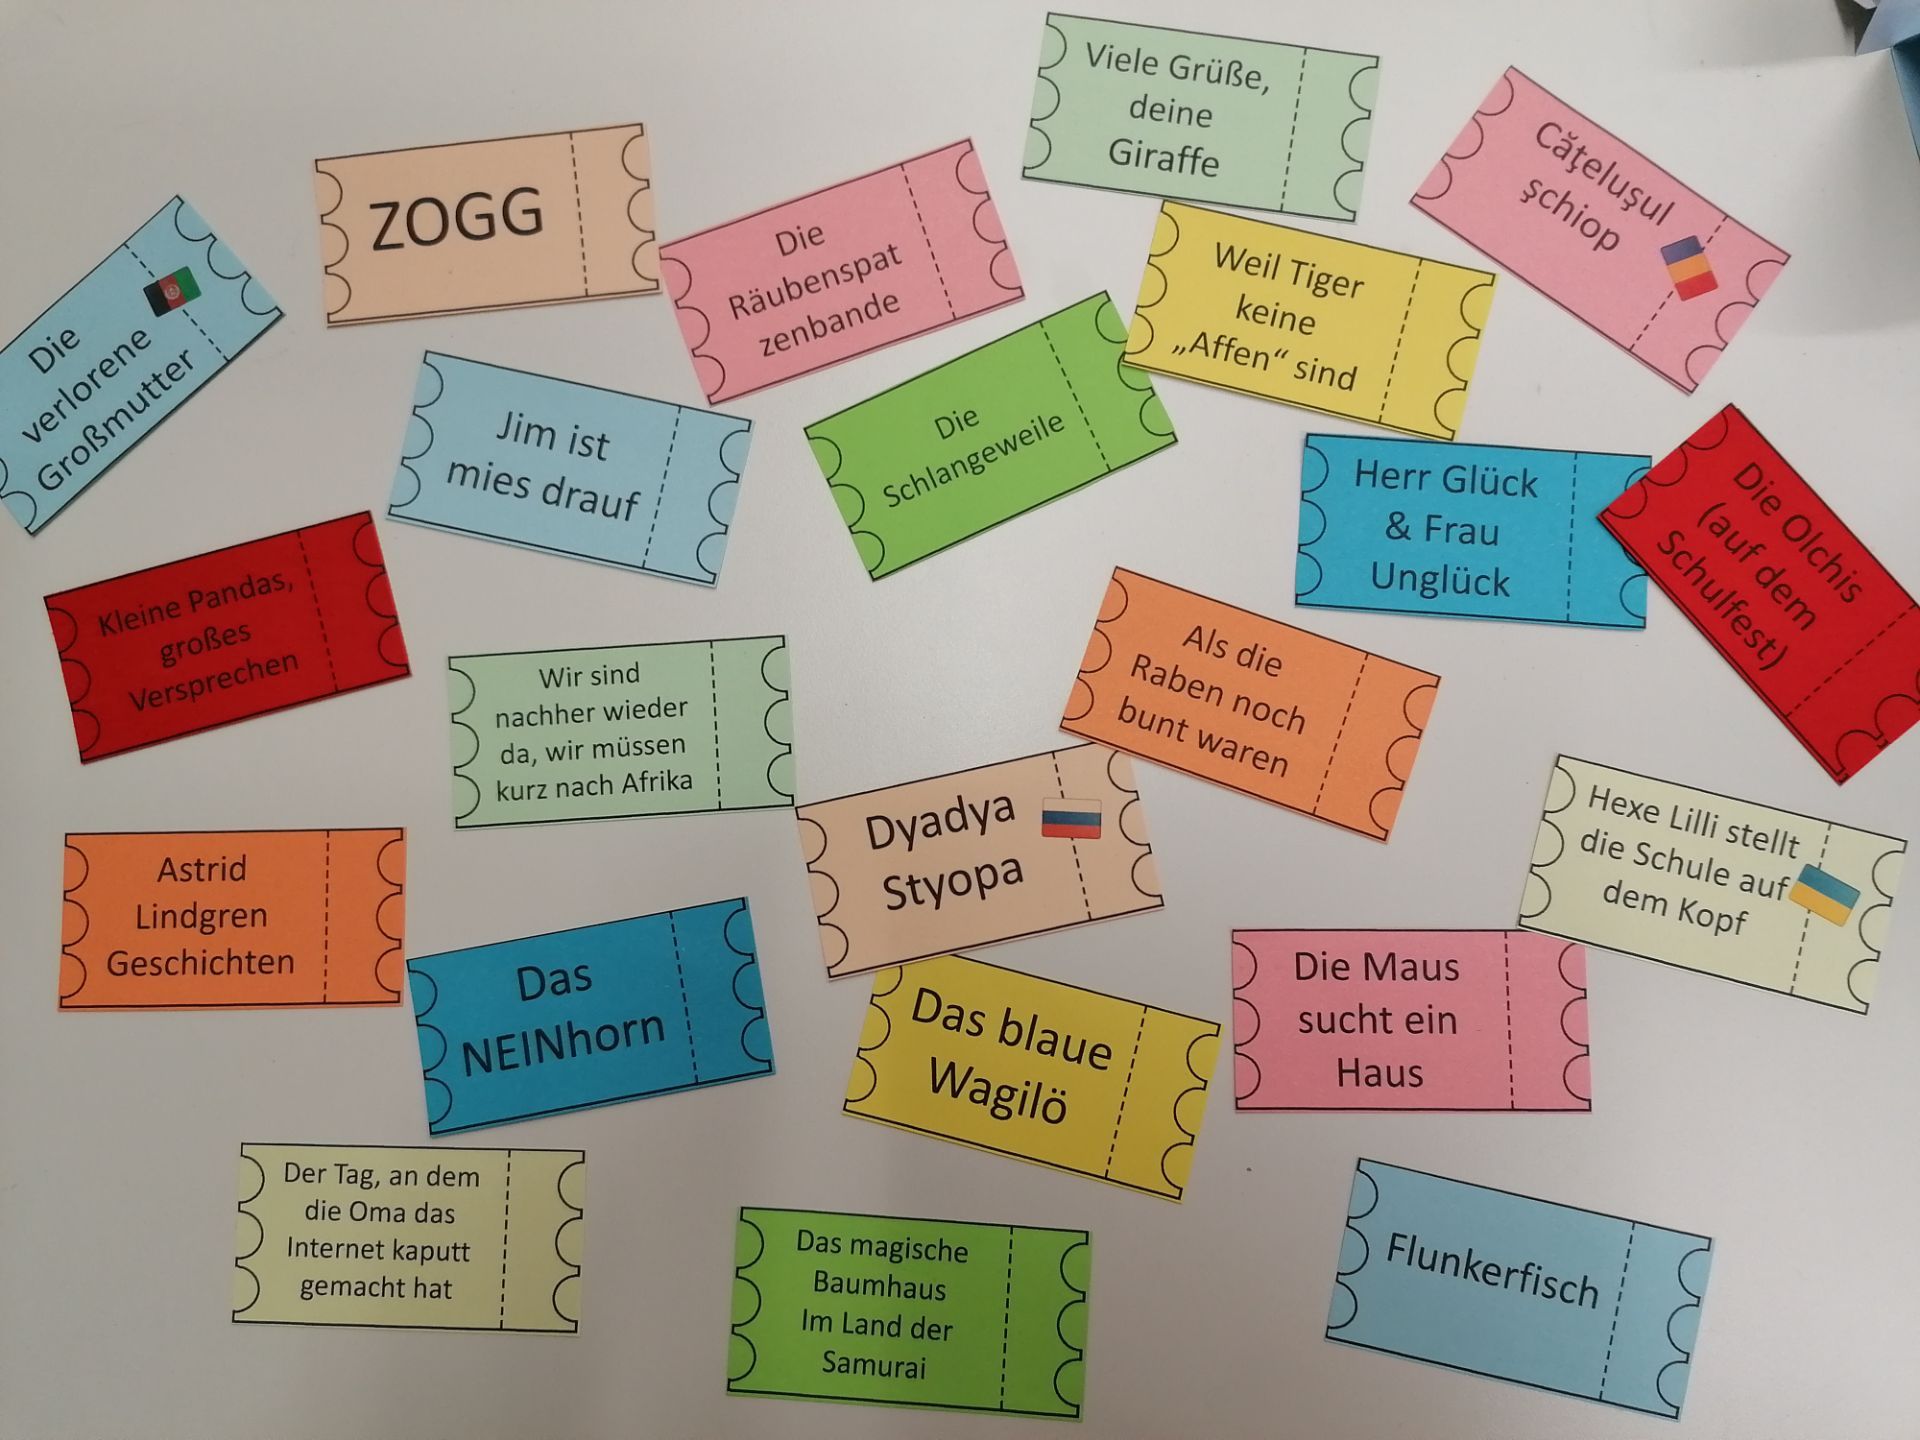 Viele Grüße,
deine
Giraffe
Căţeluşul
şchiop
ZOGG
Die
Räubenspat
zenbande
Weil Tiger
keine
„Affen“ sind
Die
verlorene
Großmutter
Jim ist
mies drauf
Die
Schlangeweile
Herr Glück
& Frau
Unglück
Die Olchis
(auf dem
Schulfest)
Kleine Pandas,
großes
Versprechen
Wir sind
nachher wieder
da, wir müssen
kurz nach Afrika
Als die
Raben noch
bunt waren
Dyadya
Styopa
Hexe Lilli stellt
die Schule auf
dem Kopf
Astrid
Lindgren
Geschichten
Das
NEINhorn
Das blaue
Wagilö
Die Maus
sucht ein
Haus
Der Tag, an dem
die Oma das
Internet kaputt
gemacht hat
Das magische
Baumhaus
Im Land der
Samurai
Flunkerfisch